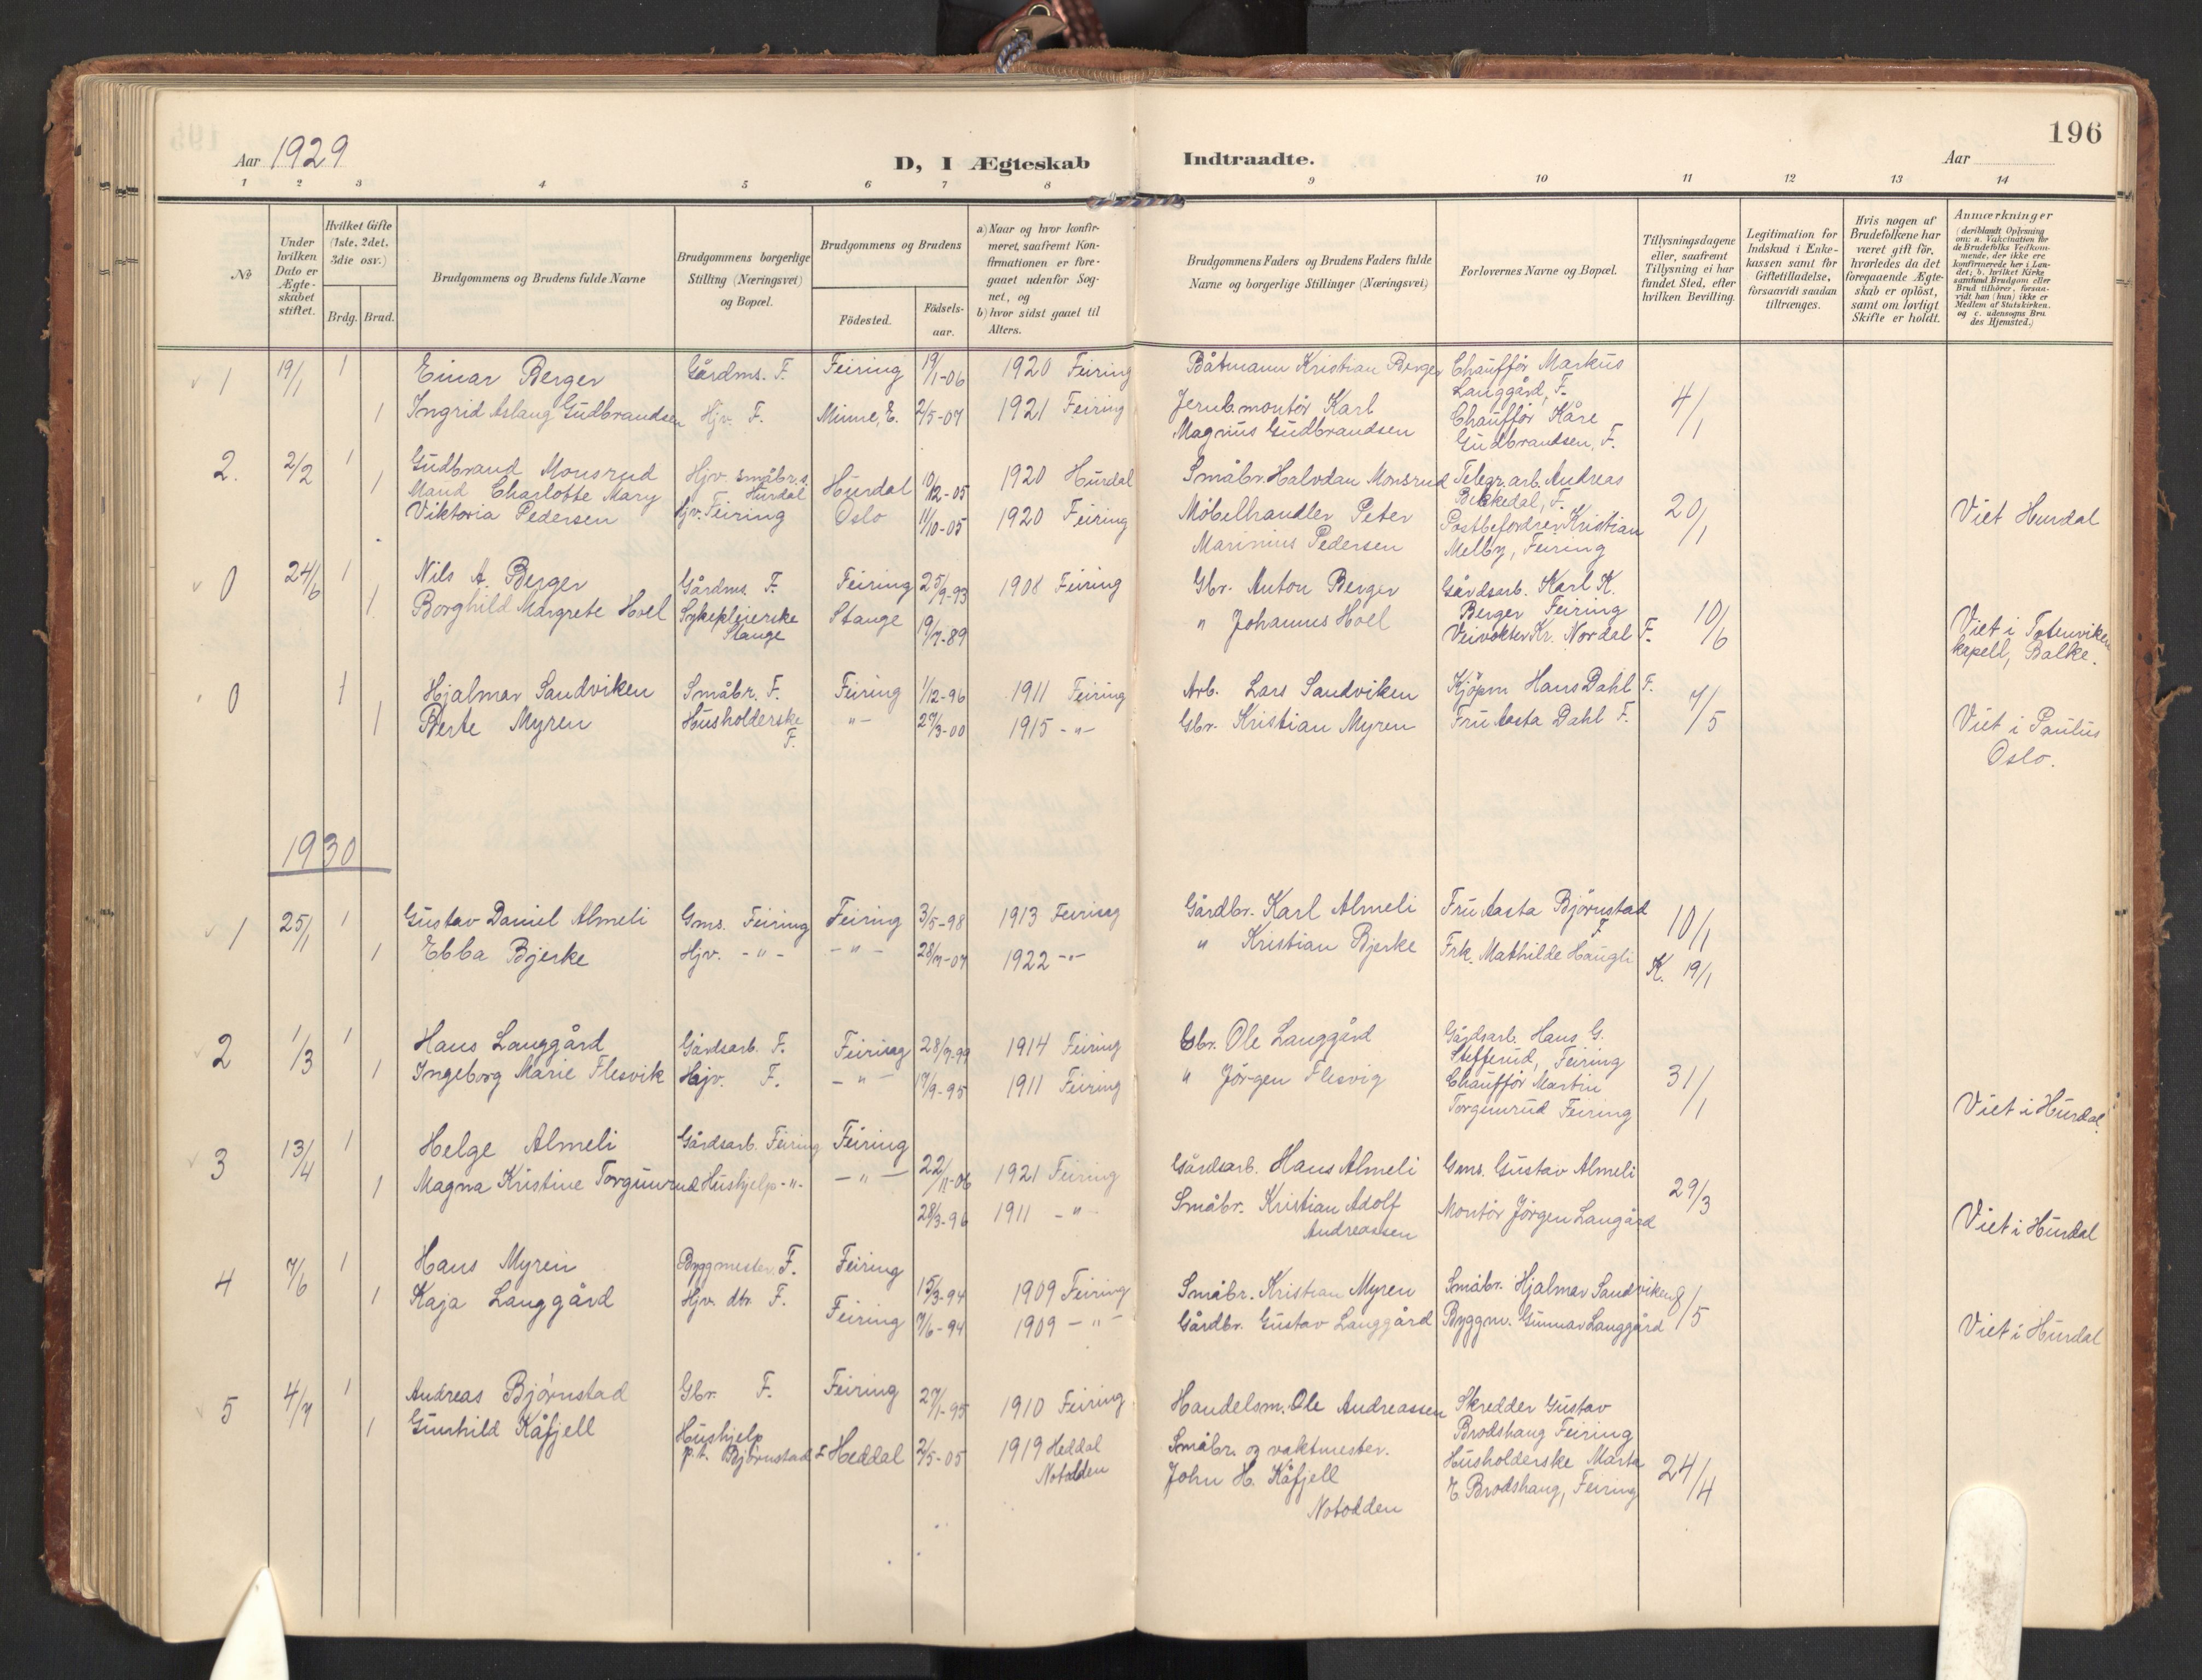 196
Aar 1929
D, I Ægteskab Indtraadte.
Aar
1 2 3 4 5 6 7 8 9 10 11 12 13 14
No
Under hvilken Dato er Ægteskabet stiftet.
Hvilket Gifte (1ste, 2det, 3die osv.)
Brdg. Brud.
Brudgommens og Brudens fulde Navne
Brudgommens borgerlige Stilling (Næringsvei) og Bopæl.
Brudgommens og Brudens
Födested.
Födsels-aar.
a) Naar og hvor konfirmeret, saafremt Konfirmationen er foregaaet udenfor Sognet, og
b) hvor sidst gaaet til Alters.
Brudgommens Faders og Brudens Faders fulde Navne og borgerlige Stillinger (Næringsvei)
Forlovernes Navne og Bopæl.
Tillysningsdagene eller, saafremt Tillysning ei har fundet Sted, efter hvilken Bevilling.
Legitimation for Indskud i Enkekassen samt for Giftetilladelse, forsaavidt saadan tiltrænges.
Hvis nogen af Brudefolkene har været gift før, hvorledes da det foregaaende Ægteskab er opløst, samt om lovligt Skifte er holdt.
Anmærkninger (deriblandt Oplysning om: a. Vakcination for de Brudefolks Vedkommende, der ikke ere konfirmerede her i Landet; b. hvilket Kirkesamfund Brudgom eller Brud tilhører, forsaavidt han (hun) ikke er Medlem af Statskirken, og c. udensogns Brudes Hjemsted.)
1 19/1 1 Einar Berger Gårdms. F. Feiring 19/1-06 1920 Feiring Båtmann Kristian Berger Chauffør Markus
Langgård, F.
1 Ingrid Aslaug Gudbrandsen Hjv. F. Minne, E. 2/5-07 1921 Feiring Jernb.montör Karl Chauffør Kåre 4/1
Magnus Gudbrandsen Gudbrandsen, F.
2. 2/2 1 Gudbrand Monsrud Hjv. småbr.s. Hurdal Hurdal 10/12-05 1920 Hurdal Småbr. Halvdan Monsrud Telegr.arb. Andreas
1 Maud Charlotte Mary Bekkedal, F.
Viktoria Pedersen Hjv. Feiring Oslo 11/10-05 1920 Feiring Möbelhandler Peter Postbefordrer Kristian 20/1 Viet Hurdal
Marinius Pedersen Melby, Feiring
0 24/6 1 Nils A. Berger Gårdms. F. Feiring 25/9-93 1908 Feiring Gbr. Anton Berger Gårdsarb. Karl K.
1 Borghild Margrete Hoel Sykepleierske Stange Stange 19/7-89 " Johannes Hoel Berger Feiring 10/6 Viet i Totenviken
Veivokter Kr. Nordal F. kapell, Balke.
0 1 Hjalmar Sandviken Småbr. F. Feiring 1/12-96 1911 Feiring Arb. Lars Sandviken Kjöpm Hans Dahl F.
1 Berte Myren Husholderske F. -"- 27/3-00 1915 -"- Gbr. Kristian Myren Fru Aasta Dahl F. 7/5 Viet i Paulus
Oslo.
1930
1 25/1 1 Gustav Daniel Almeli Gms. Feiring Feiring 3/5-98 1913 Feiring Gårdbr. Karl Almeli Fru Aasta Björnstad F. 10/1
1 Ebba Bjerke Hjv. -"- -"- 28/7-07 1922 -"- " Kristian Bjerke Frk. Mathilde Haugli K. 19/1
2 1/3 1 Hans Langgård Gårdsarb. F. Feiring 28/7-99 1914 Feiring Gbr. Ole Langgård Gårdsarb. Hans G.
Stefferud, Feiring
1 Ingeborg Marie Flesvik Hjv. F. -"- 17/9-95 1911 Feiring " Jörgen Flesvig Chauffør Martin 31/1
Torgunrud Feiring Viet i Hurdal.
3 13/4 1 Helge Almeli Gårdsarb. Feiring Feiring 22/11-06 1921 Feiring Gårdsarb. Hans Almeli Gms. Gustav Almeli
1 Magna Kristine Torgunrud Hushjelp -"- -"- 28/3-96 1911 -"- Småbr. Kristian Adolf Andreassen Montör Jörgen Langård 29/3 Viet i Hurdal
4 7/6 1 Hans Myren Byggmester F. Feiring 15/3-94 1909 Feiring Småbr. Kristian Myren Småbr. Hjalmar Sandviken 8/5
1 Kaja Langgård Hjv. dtr. F. Feiring 7/6-94 1909 -"- Gårdbr. Gustav Langgård Byggm. Gunnar Langgård Viet i Hurdal
5 4/7 1 Andreas Björnstad Gbr. F. Feiring 27/1-95 1910 Feiring Handelsm. Ole Andreassen Skredder Gustav
Brodshaug Feiring
1 Gunhild Kåfjell Hushjelp p.t. Björnstad F Heddal 2/5-05 1919 Heddal Notodden Småbr. og vaktmester. Husholderske Marta
John H. Kåfjell E Brodshaug, Feiring 24/4
Notodden